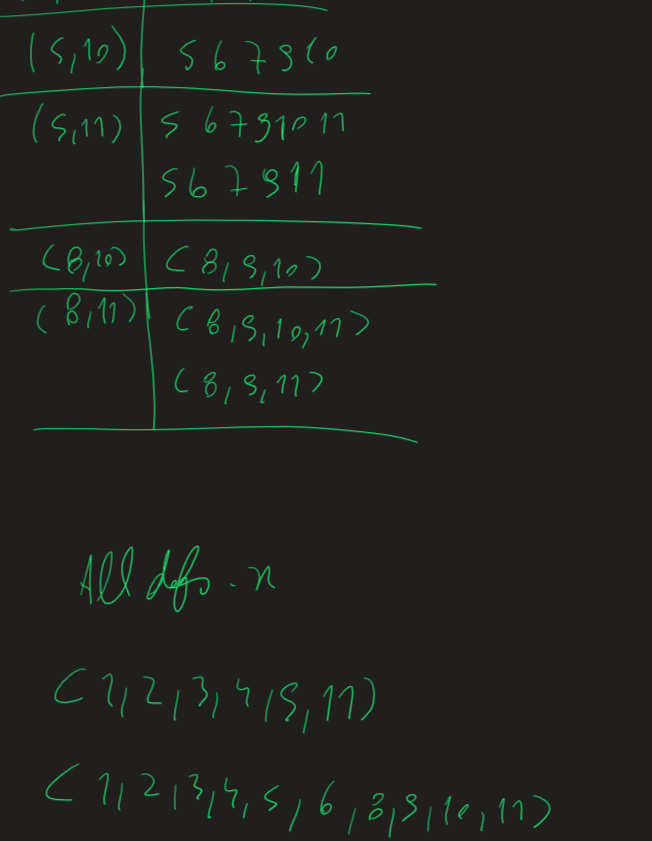 (5,10) 5 6 7 9 10
(5,11) 5 6 7 9 10 11
5 6 7 9 11
(8,10) (8,9,10)
(8,11) (8,9,10,11)
(8,9,11)
All defs - x
(1,2,3,4,9,11)
(1,2,3,4,5,6,8,9,10,11)